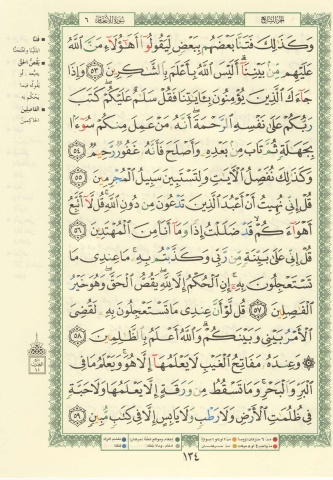 الجزء السابع
سورة الأنعام ٦
وَكَذَٰلِكَ فَتَنَّا بَعْضَهُم بِبَعْضٍ لِّيَقُولُوٓا۟ أَهَـٰٓؤُلَآءِ مَنَّ ٱللَّهُ
عَلَيْهِم مِّنۢ بَيْنِنَآ أَلَيْسَ ٱللَّهُ بِأَعْلَمَ بِٱلشَّـٰكِرِينَ ٥٣ وَإِذَا
جَآءَكَ ٱلَّذِينَ يُؤْمِنُونَ بِـَٔايَـٰتِنَا فَقُلْ سَلَـٰمٌ عَلَيْكُمْ كَتَبَ
رَبُّكُمْ عَلَىٰ نَفْسِهِ ٱلرَّحْمَةَ أَنَّهُۥ مَنْ عَمِلَ مِنكُمْ سُوٓءًۢا
بِجَهَـٰلَةٍ ثُمَّ تَابَ مِنۢ بَعْدِهِۦ وَأَصْلَحَ فَأَنَّهُۥ غَفُورٌ رَّحِيمٌ ٥٤
وَكَذَٰلِكَ نُفَصِّلُ ٱلْـَٔايَـٰتِ وَلِتَسْتَبِينَ سَبِيلُ ٱلْمُجْرِمِينَ ٥٥
قُلْ إِنِّى نُهِيتُ أَنْ أَعْبُدَ ٱلَّذِينَ تَدْعُونَ مِن دُونِ ٱللَّهِ قُل لَّآ أَتَّبِعُ
أَهْوَآءَكُمْ قَدْ ضَلَلْتُ إِذًا وَمَآ أَنَا۠ مِنَ ٱلْمُهْتَدِينَ ٥٦
قُلْ إِنِّى عَلَىٰ بَيِّنَةٍ مِّن رَّبِّى وَكَذَّبْتُم بِهِۦ مَا عِندِى مَا
تَسْتَعْجِلُونَ بِهِۦٓ إِنِ ٱلْحُكْمُ إِلَّا لِلَّهِ يَقُصُّ ٱلْحَقَّ وَهُوَ خَيْرُ
ٱلْفَـٰصِلِينَ ٥٧ قُل لَّوْ أَنَّ عِندِى مَا تَسْتَعْجِلُونَ بِهِۦ لَقُضِىَ
ٱلْأَمْرُ بَيْنِى وَبَيْنَكُمْ وَٱللَّهُ أَعْلَمُ بِٱلظَّـٰلِمِينَ ٥٨
وَعِندَهُۥ مَفَاتِحُ ٱلْغَيْبِ لَا يَعْلَمُهَآ إِلَّا هُوَ وَيَعْلَمُ مَا فِى
ٱلْبَرِّ وَٱلْبَحْرِ وَمَا تَسْقُطُ مِن وَرَقَةٍ إِلَّا يَعْلَمُهَا وَلَا حَبَّةٍ
فِى ظُلُمَـٰتِ ٱلْأَرْضِ وَلَا رَطْبٍ وَلَا يَابِسٍ إِلَّا فِى كِتَـٰبٍ مُّبِينٍ ٥٩
١٣٤